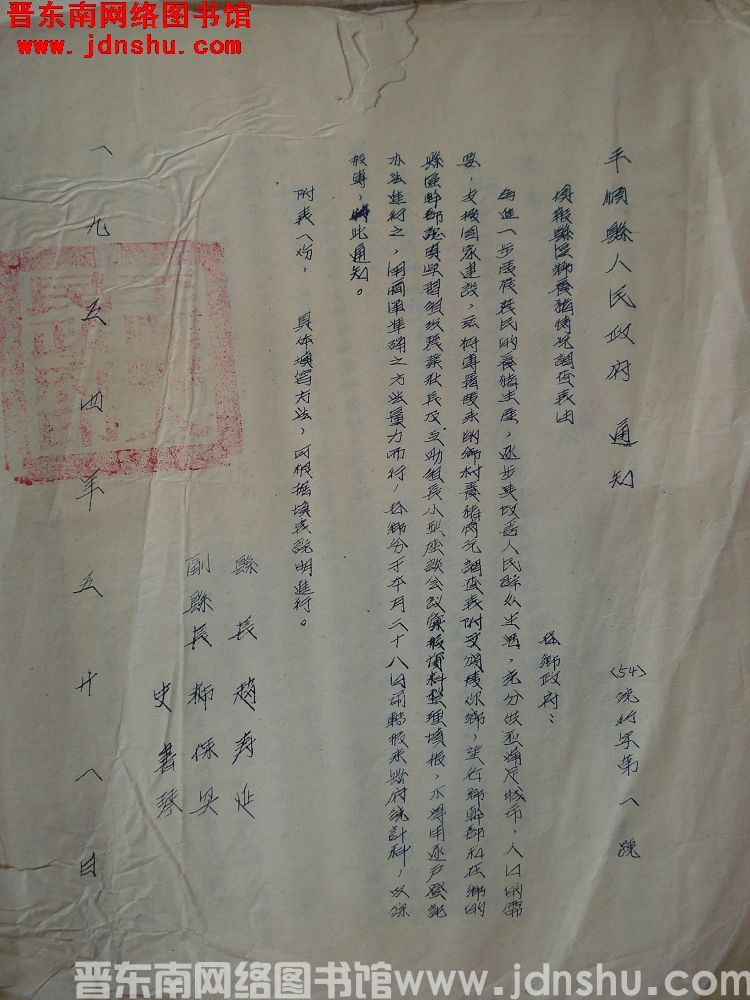 晋东南网络图书馆
www.jdnshu.com
平順縣人民政府 通知
(54)統社字第八號
填報縣區鄉養豬情况調查表由
各鄉政府：
為進一步發展農民的養豬生產，逐步提改善人民群众生活，充分供应滿足城市，人口的需
要，支援国家建設，玆將專署發来的鄉村養豬情况調查表附文頒發你鄉，望各鄉幹部和在鄉的
縣區幹部認真学習組织農業社長及互助組長小型座談会議彙報資料整理填报，不得用逐戶登記
办法進行之，用簡单準確之方法量力而行，各鄉分于本月二十八日前轉报来縣府統計科，以便
报專，特此通知。
附表一份， 具体填写方法，可根据填表說明進行。
縣長 趙寿延
副縣長
史書琴
一九五四年五 廿八日
晋东南网络图书馆www.jdnshu.com